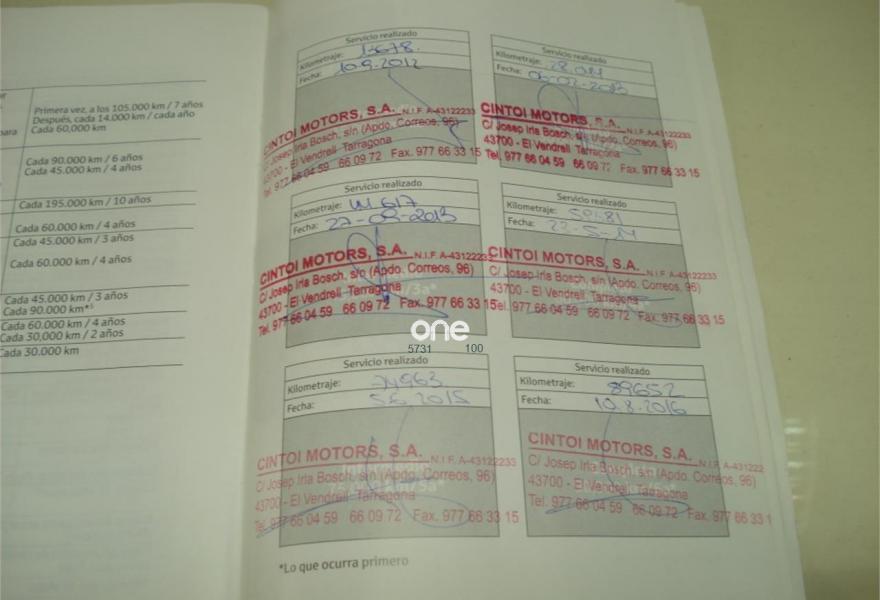 Primera vez, a los 105.000 km / 7 años
Después, cada 14.000 km / cada año
para Cada 60,000 km
Cada 90.000 km / 6 años
Cada 45.000 km / 4 años
Cada 195.000 km / 10 años
Cada 60.000 km / 4 años
Cada 45.000 km / 3 años
Cada 60.000 km / 4 años
Cada 45.000 km / 3 años
Cada 90.000 km*
Cada 60.000 km / 4 años
Cada 30,000 km / 2 años
Cada 30.000 km
Servicio realizado
Kilometraje:
Fecha: 10.9.2012
CINTOI MOTORS, S.A. N.I.F. A-43122233
C/ Josep Irla Bosch, s/n (Apdo. Correos, 96)
43700 - El Vendrell Tarragona
Tel. 977 66 04 59 66 09 72 Fax. 977 66 33 15
Servicio realizado
Kilometraje:
Fecha:
CINTOI MOTORS, S.A. N.I.F. A-43122233
C/ Josep Irla Bosch, s/n (Apdo. Correos, 96)
43700 - El Vendrell Tarragona
Tel. 977 66 04 59 66 09 72 Fax. 977 66 33 15
Servicio realizado
Kilometraje:
Fecha:
CINTOI MOTORS, S.A. N.I.F. A-43122233
C/ Josep Irla Bosch, s/n (Apdo. Correos, 96)
43700 - El Vendrell Tarragona
Tel. 977 66 04 59 66 09 72 Fax. 977 66 33 15
Servicio realizado
Kilometraje:
Fecha:
CINTOI MOTORS, S.A. N.I.F. A-43122233
C/ Josep Irla Bosch, s/n (Apdo. Correos, 96)
43700 - El Vendrell Tarragona
Tel. 977 66 04 59 66 09 72 Fax. 977 66 33 15
one
5731 100
Servicio realizado
Kilometraje: 74963
Fecha: 5.6.2015
CINTOI MOTORS, S.A. N.I.F. A-43122233
C/ Josep Irla Bosch, s/n (Apdo. Correos, 96)
43700 - El Vendrell Tarragona
Tel. 977 66 04 59 66 09 72 Fax. 977 66 33 15
Servicio realizado
Kilometraje: 89652
Fecha: 10.8.2016
CINTOI MOTORS, S.A. N.I.F. A-43122233
C/ Josep Irla Bosch, s/n (Apdo. Correos, 96)
43700 - El Vendrell Tarragona
Tel. 977 66 04 59 66 09 72 Fax. 977 66 33 1
*Lo que ocurra primero